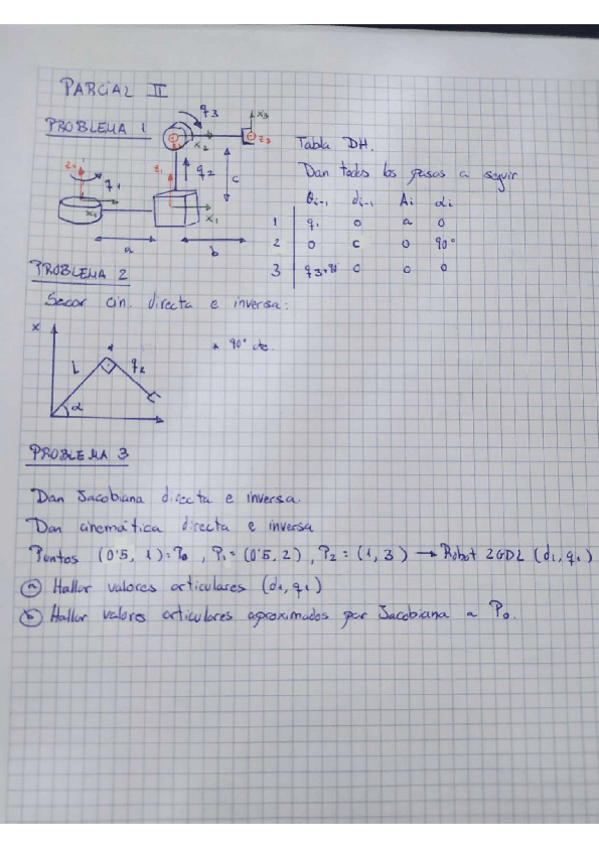 PARCIAL II
PROBLEMA 1
q3
x3
z3
x2
Tabla DH.
Dan todos los pasos a seguir
z0
q1
z1
q2
c
x0
x1
a
b
θi-1 di-1 Ai αi
1 q1 0 a 0
2 0 c 0 90°
3 q3+90 0 0 0
PROBLEMA 2
Sacar cin. directa e inversa:
x
L
*
q2
α
* 90° cte.
PROBLEMA 3
Dan Jacobiana directa e inversa.
Dan cinemática directa e inversa
Puntos (0'5, 1)=P0, P1=(0'5, 2), P2=(1, 3) → Robot 2GDL (d1, q1)
a Hallar valores articulares (d1, q1)
b Hallar valores articulares aproximados por Jacobiana a P0.